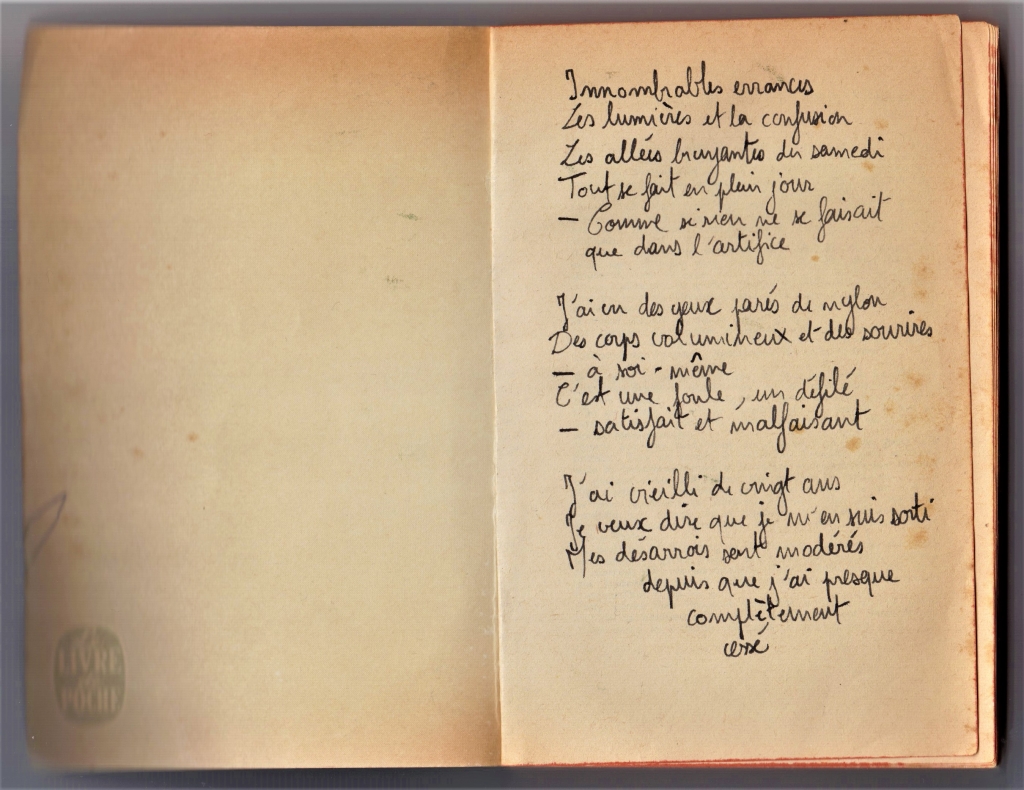 LE
LIVRE
DE
POCHE
Innombrables errances
Les lumières et la confusion
Les allées bruyantes du samedi
Tout se fait en plein jour
– Comme si rien ne se faisait
que dans l'artifice
J'ai vu des yeux parés de nylon
Des corps volumineux et des sourires
– à soi-même
C'est une foule, un défilé
– satisfait et malfaisant
J'ai vieilli de vingt ans
Je veux dire que je m'en suis sorti
Mes désarrois sont modérés
depuis que j'ai presque
complètement
cessé